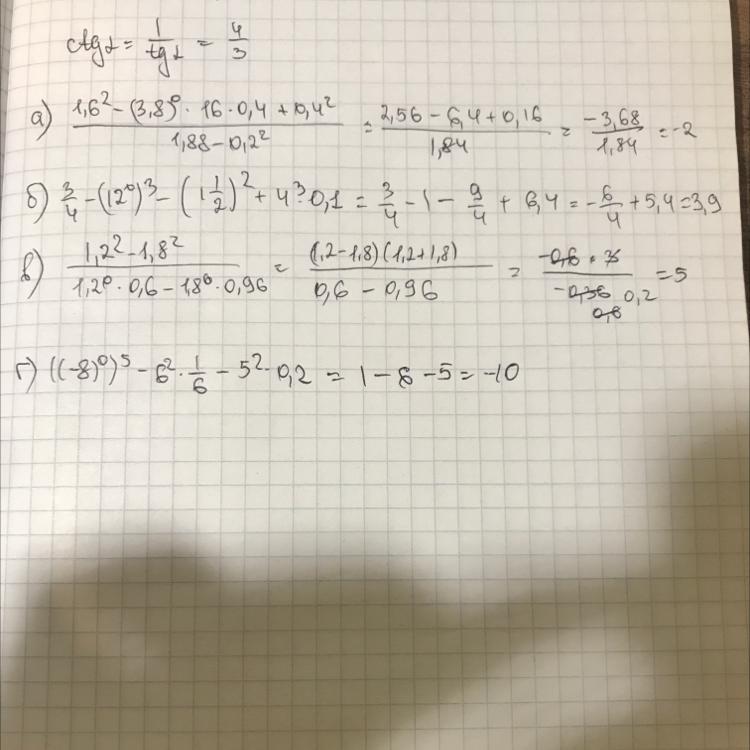 ctg α = 1/tg α = 4/3
а) (1,6² - (3,8)⁰ · 16 · 0,4 + 0,4²)/(1,88 - 0,2²) = (2,56 - 6,4 + 0,16)/1,84 = -3,68/1,84 = -2
б) 3/4 - (12⁰)³ - (1 1/2)² + 4³ · 0,1 = 3/4 - 1 - 9/4 + 6,4 = -6/4 + 5,4 = 3,9
в) (1,2² - 1,8²)/(1,2⁰ · 0,6 - 1,8⁰ · 0,96) = ((1,2 - 1,8)(1,2 + 1,8))/(0,6 - 0,96) = (-0,6 · 3)/(-0,36) = 5
0,2
0,6
г) ((-8)⁰)⁵ - 6² · 1/6 - 5² · 0,2 = 1 - 6 - 5 = -10